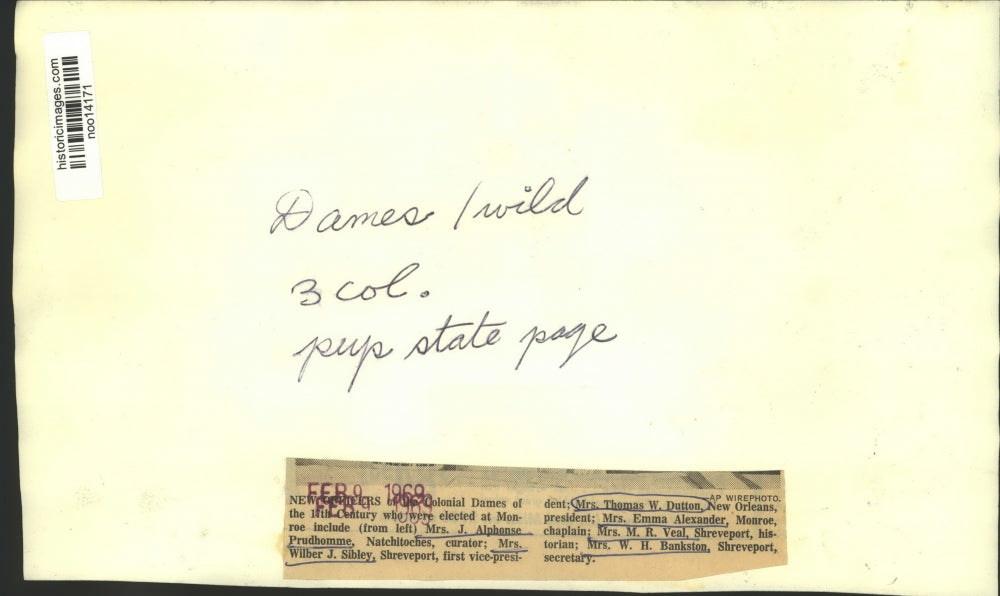 historicimages.com
noo14171
Dames / wild
3 col.
pup state page
FEB 9 1969
FEB 9 1969
AP WIREPHOTO.
NEW OFFICERS of the Colonial Dames of
the 17th Century who were elected at Mon-
roe include (from left) Mrs. J. Alphonse
Prudhomme, Natchitoches, curator; Mrs.
Wilber J. Sibley, Shreveport, first vice-presi-
dent; Mrs. Thomas W. Dutton, New Orleans,
president; Mrs. Emma Alexander, Monroe,
chaplain; Mrs. M. R. Veal, Shreveport, his-
torian; Mrs. W. H. Bankston, Shreveport,
secretary.